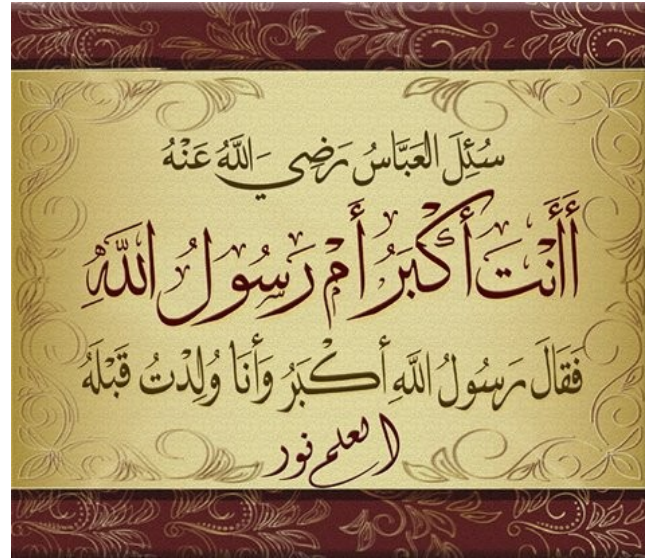 سُئِلَ العَبَّاسُ رَضِيَ اللَّهُ عَنْهُ
أَأَنْتَ أَكْبَرُ أَمْ رَسُولُ اللَّهِ
فَقَالَ رَسُولُ اللَّهِ أَكْبَرُ وَأَنَا وُلِدْتُ قَبْلَهُ
العلم نور